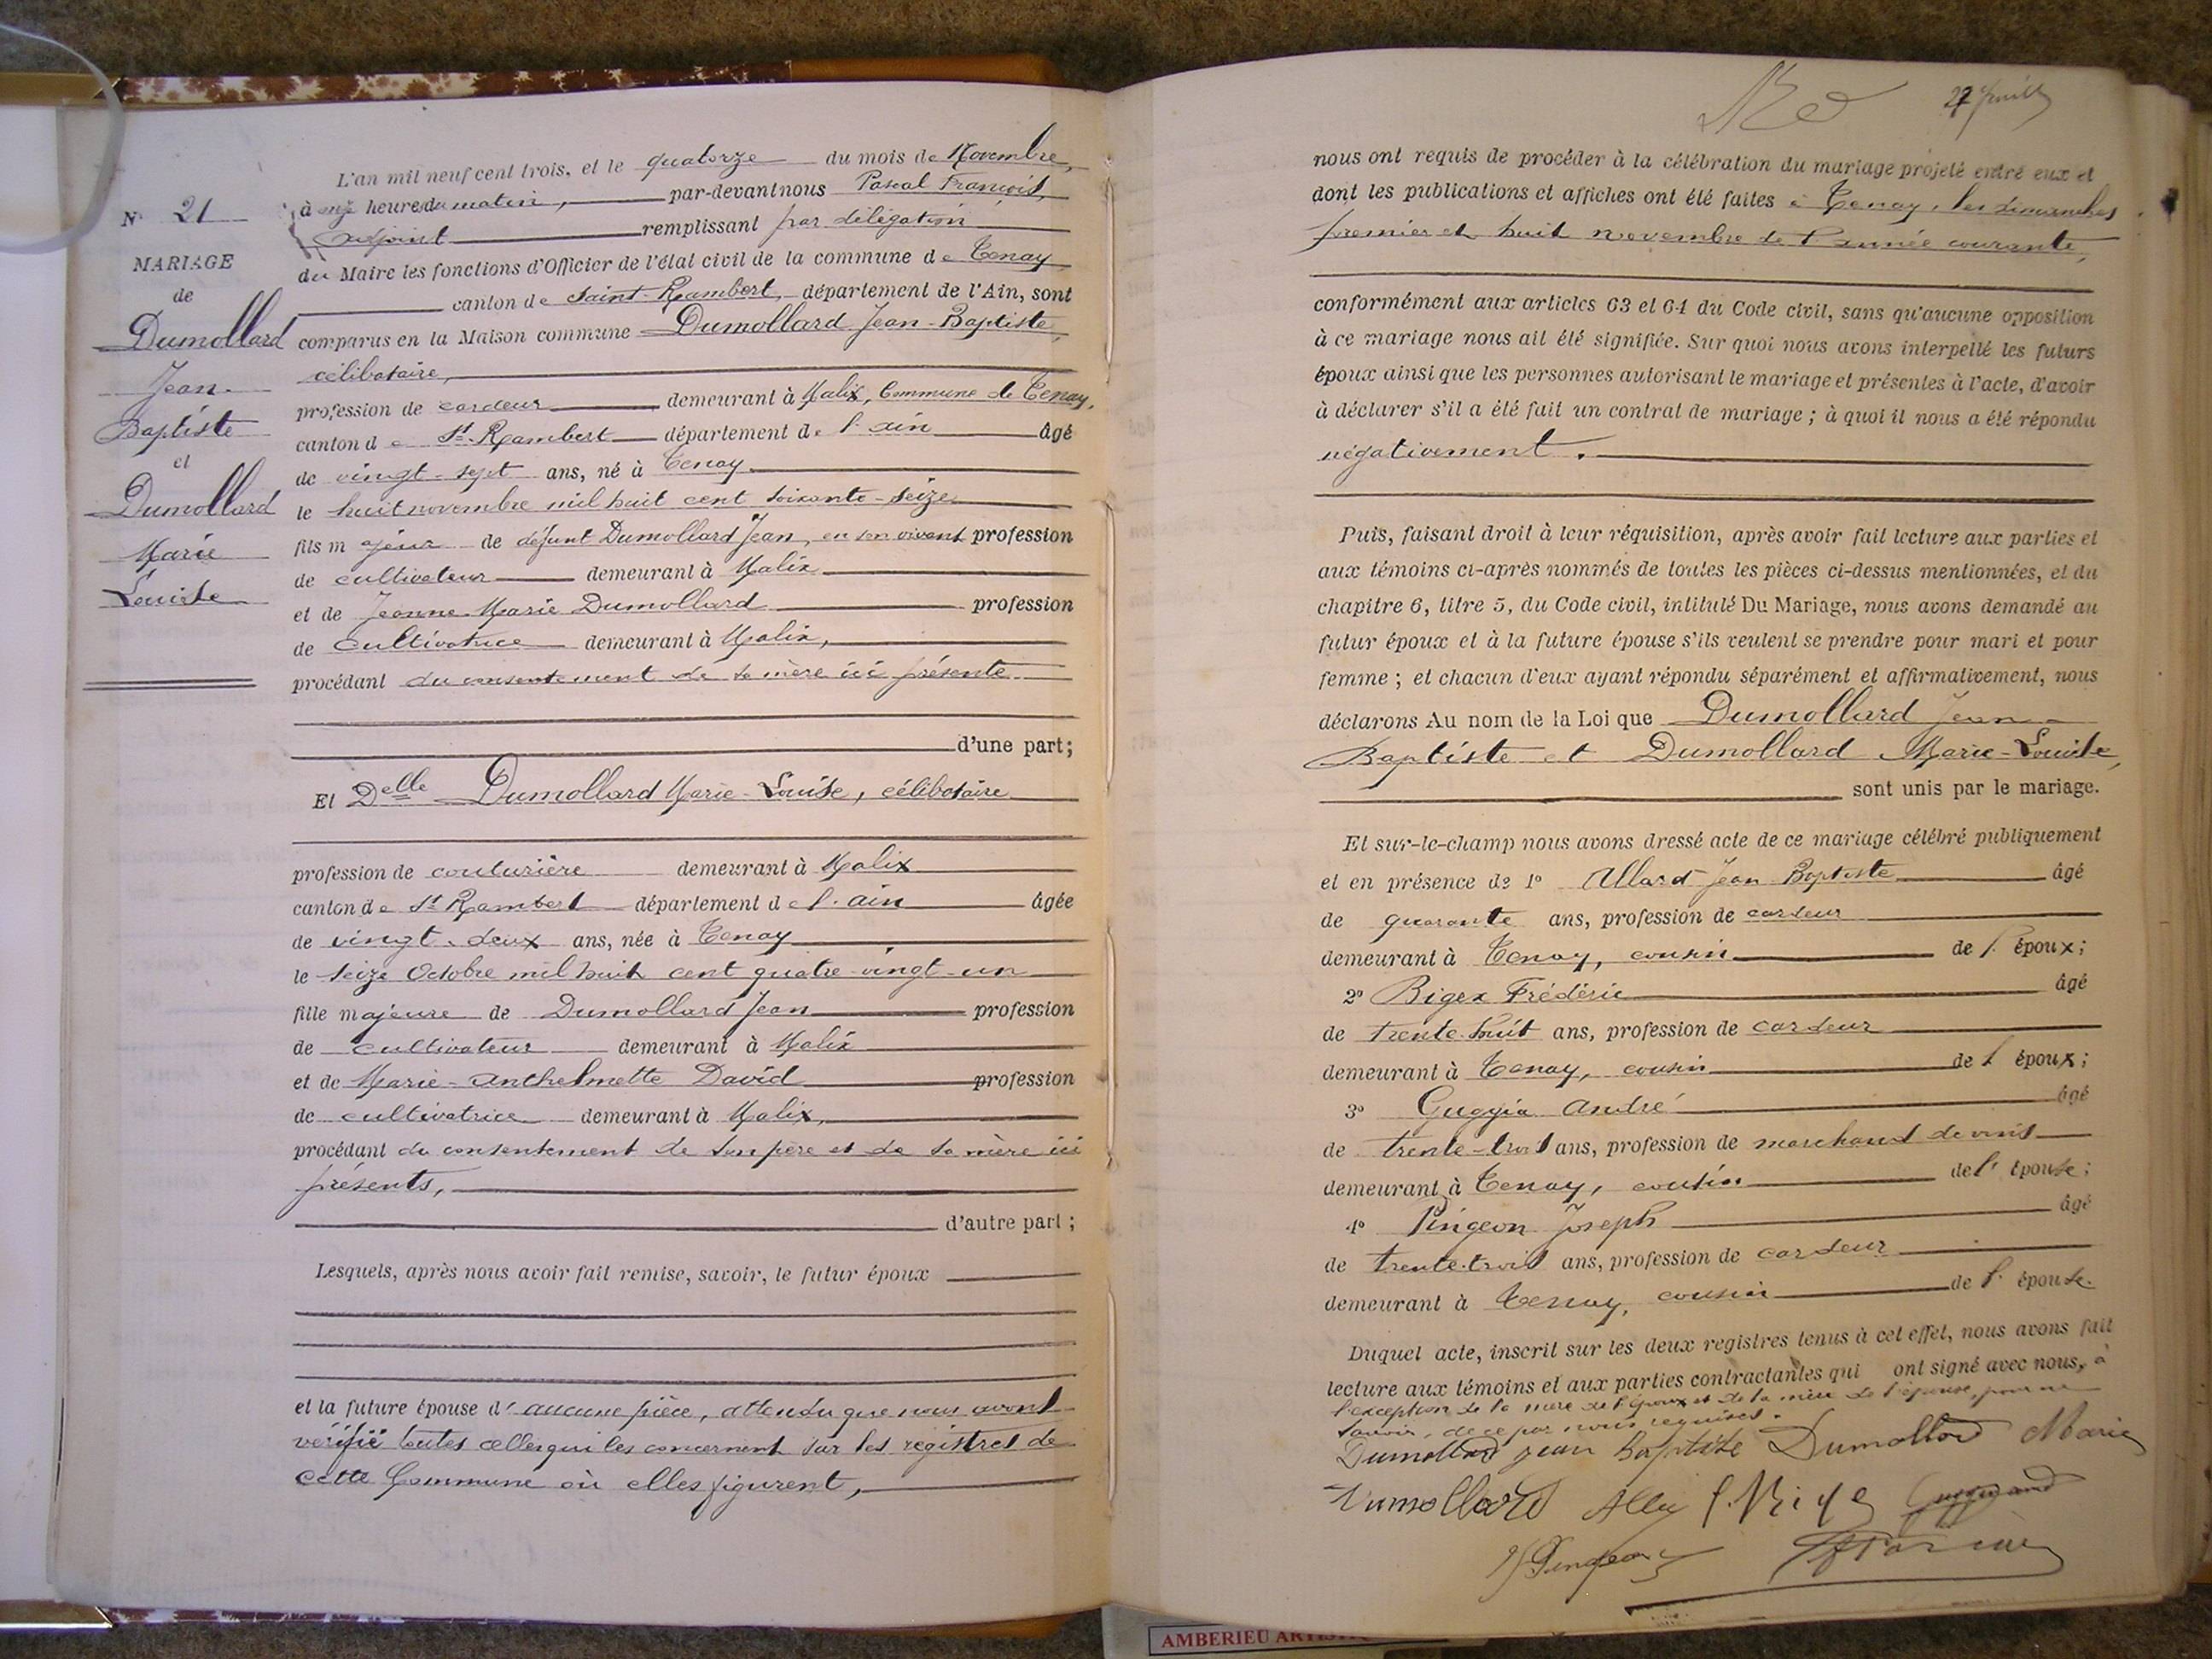 N° 21
MARIAGE
de
Dumollard
Jean-
Baptiste
et
Dumollard
Marie
Louise
L'an mil neuf cent trois, et le quatorze du mois de Novembre,
à onze heures du matin, par-devant nous Pascal François,
adjoint remplissant par délégation
du Maire les fonctions d'Officier de l'état civil de la commune de Tenay
canton de Saint-Rambert, département de l'Ain, sont
comparus en la Maison commune Dumollard Jean-Baptiste,
célibataire,
profession de cardeur demeurant à Malix, Commune de Tenay,
canton de St-Rambert département de l'ain âgé
de vingt-sept ans, né à Tenay
le huit novembre mil huit cent soixante-seize
fils majeur de défunt Dumollard Jean, en son vivant profession
de cultivateur demeurant à Malix
et de Jeanne Marie Dumollard profession
de cultivatrice demeurant à Malix,
procédant du consentement de sa mère ici présente
d'une part;
Et Delle Dumollard Marie-Louise, célibataire
profession de couturière demeurant à Malix
canton de St Rambert département de l'ain âgée
de vingt-deux ans, née à Tenay
le seize Octobre mil huit cent quatre-vingt-un
fille majeure de Dumollard Jean profession
de cultivateur demeurant à Malix
et de Marie-Anthelmette David profession
de cultivatrice demeurant à Malix,
procédant du consentement de son père et de sa mère ici
présents,
d'autre part;
Lesquels, après nous avoir fait remise, savoir, le futur époux
et la future épouse d'aucune pièce, attendu que nous avons
vérifié toutes celles qui les concernent sur les registres de
cette Commune où elles figurent,
nous ont requis de procéder à la célébration du mariage projeté entre eux et
dont les publications et affiches ont été faites à Tenay, les dimanches
premier et huit novembre de l'année courante,
conformément aux articles 63 et 64 du Code civil, sans qu'aucune opposition
à ce mariage nous ait été signifiée. Sur quoi nous avons interpellé les futurs
époux ainsi que les personnes autorisant le mariage et présentes à l'acte, d'avoir
à déclarer s'il a été fait un contrat de mariage; à quoi il nous a été répondu
négativement.
Puis, faisant droit à leur réquisition, après avoir fait lecture aux parties et
aux témoins ci-après nommés de toutes les pièces ci-dessus mentionnées, et du
chapitre 6, titre 5, du Code civil, intitulé Du Mariage, nous avons demandé au
futur époux et à la future épouse s'ils veulent se prendre pour mari et pour
femme; et chacun d'eux ayant répondu séparément et affirmativement, nous
déclarons Au nom de la Loi que Dumollard Jean-
Baptiste et Dumollard Marie-Louise,
sont unis par le mariage.
Et sur-le-champ nous avons dressé acte de ce mariage célébré publiquement
et en présence de 1° Allard Jean Baptiste âgé
de quarante ans, profession de cardeur
demeurant à Tenay, cousin de l'époux;
2° Bigex Frédéric âgé
de trente-huit ans, profession de cardeur
demeurant à Tenay, cousin de l'époux;
3° Guggia André âgé
de trente-trois ans, profession de marchand de vins
demeurant à Tenay, cousin de l'épouse;
4° Pingeon Joseph âgé
de trente-trois ans, profession de cardeur
demeurant à Tenay, cousin de l'épouse.
Duquel acte, inscrit sur les deux registres tenus à cet effet, nous avons fait
lecture aux témoins et aux parties contractantes qui ont signé avec nous, à
l'exception de la mère de l'époux et de la mère de l'épouse, pour ne
savoir, de ce par nous requises.
Dumollard jean baptiste Dumollard Marie
Dumollard
J Pingeon
AMBERIEU